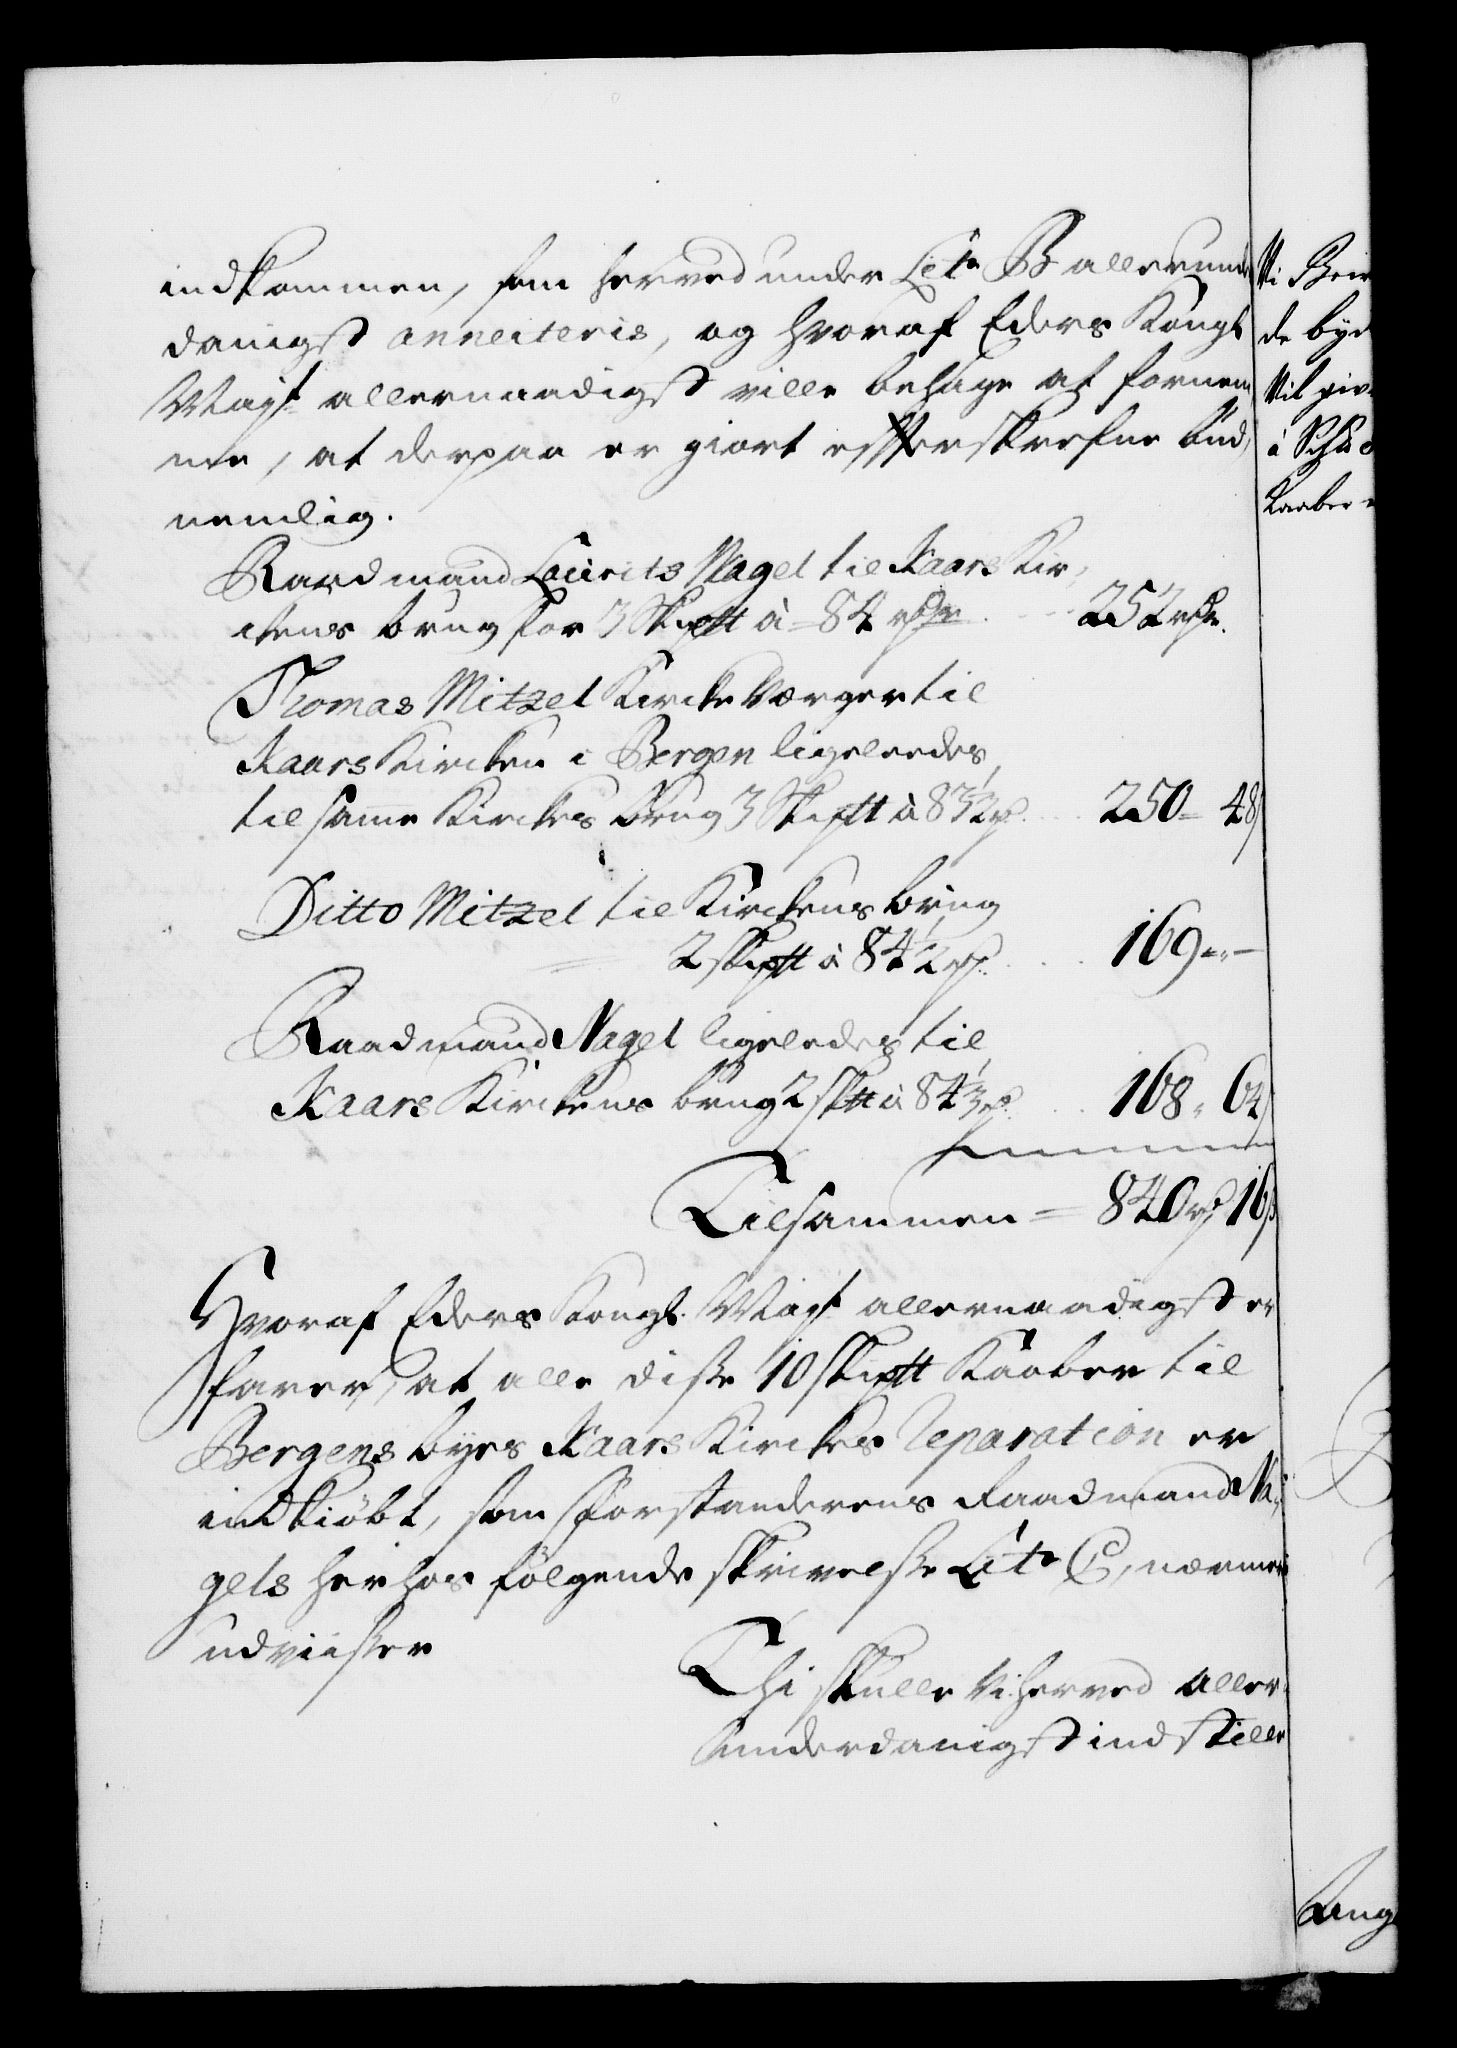 indkommen, som herved under Lit: B allerund
danigst annecteris, og hvoraf Eders Kongl
Mayt allernaadigst ville behage at fornem
me, at derpaa er giort efterskrefne bud,
nemlig.
Raadmand Laurits Nagel til Kaars Kir,
ckens brug for 3 Skptt à 84 rdr. 252 rdr.
Thomas Mitzel Kircke Værger til
Kaars Kircken i Bergen ligeleedes
til samme Kirckes brug 3 Skiptt à 83½ rd. 250 = 48
Ditto Mitzel til Kirckens brug
2 skiptt à 84½ rd. 169 „ –
Raadmand Nagel ligeledes til
Kaars Kirckens brug 2 skptt à 84⅓ rd. 168 „ 64
Tilsammen = 840 rd 16 s
Hvoraf Eders Kongl. Mayt allernaadigst er
farer, at alle disse 10 skiptt Kaaber til
Bergens byes Kaars Kirckes Reparation er
indkiöbt, som Forstanderens Raadmand Na,
gels herhos fölgende skrivelse Lit: C, nærmere
udviisser
Thi skulle Vi herved aller
underdanigst indstille
Vi
de byd
Vil giv
à
Kaaber